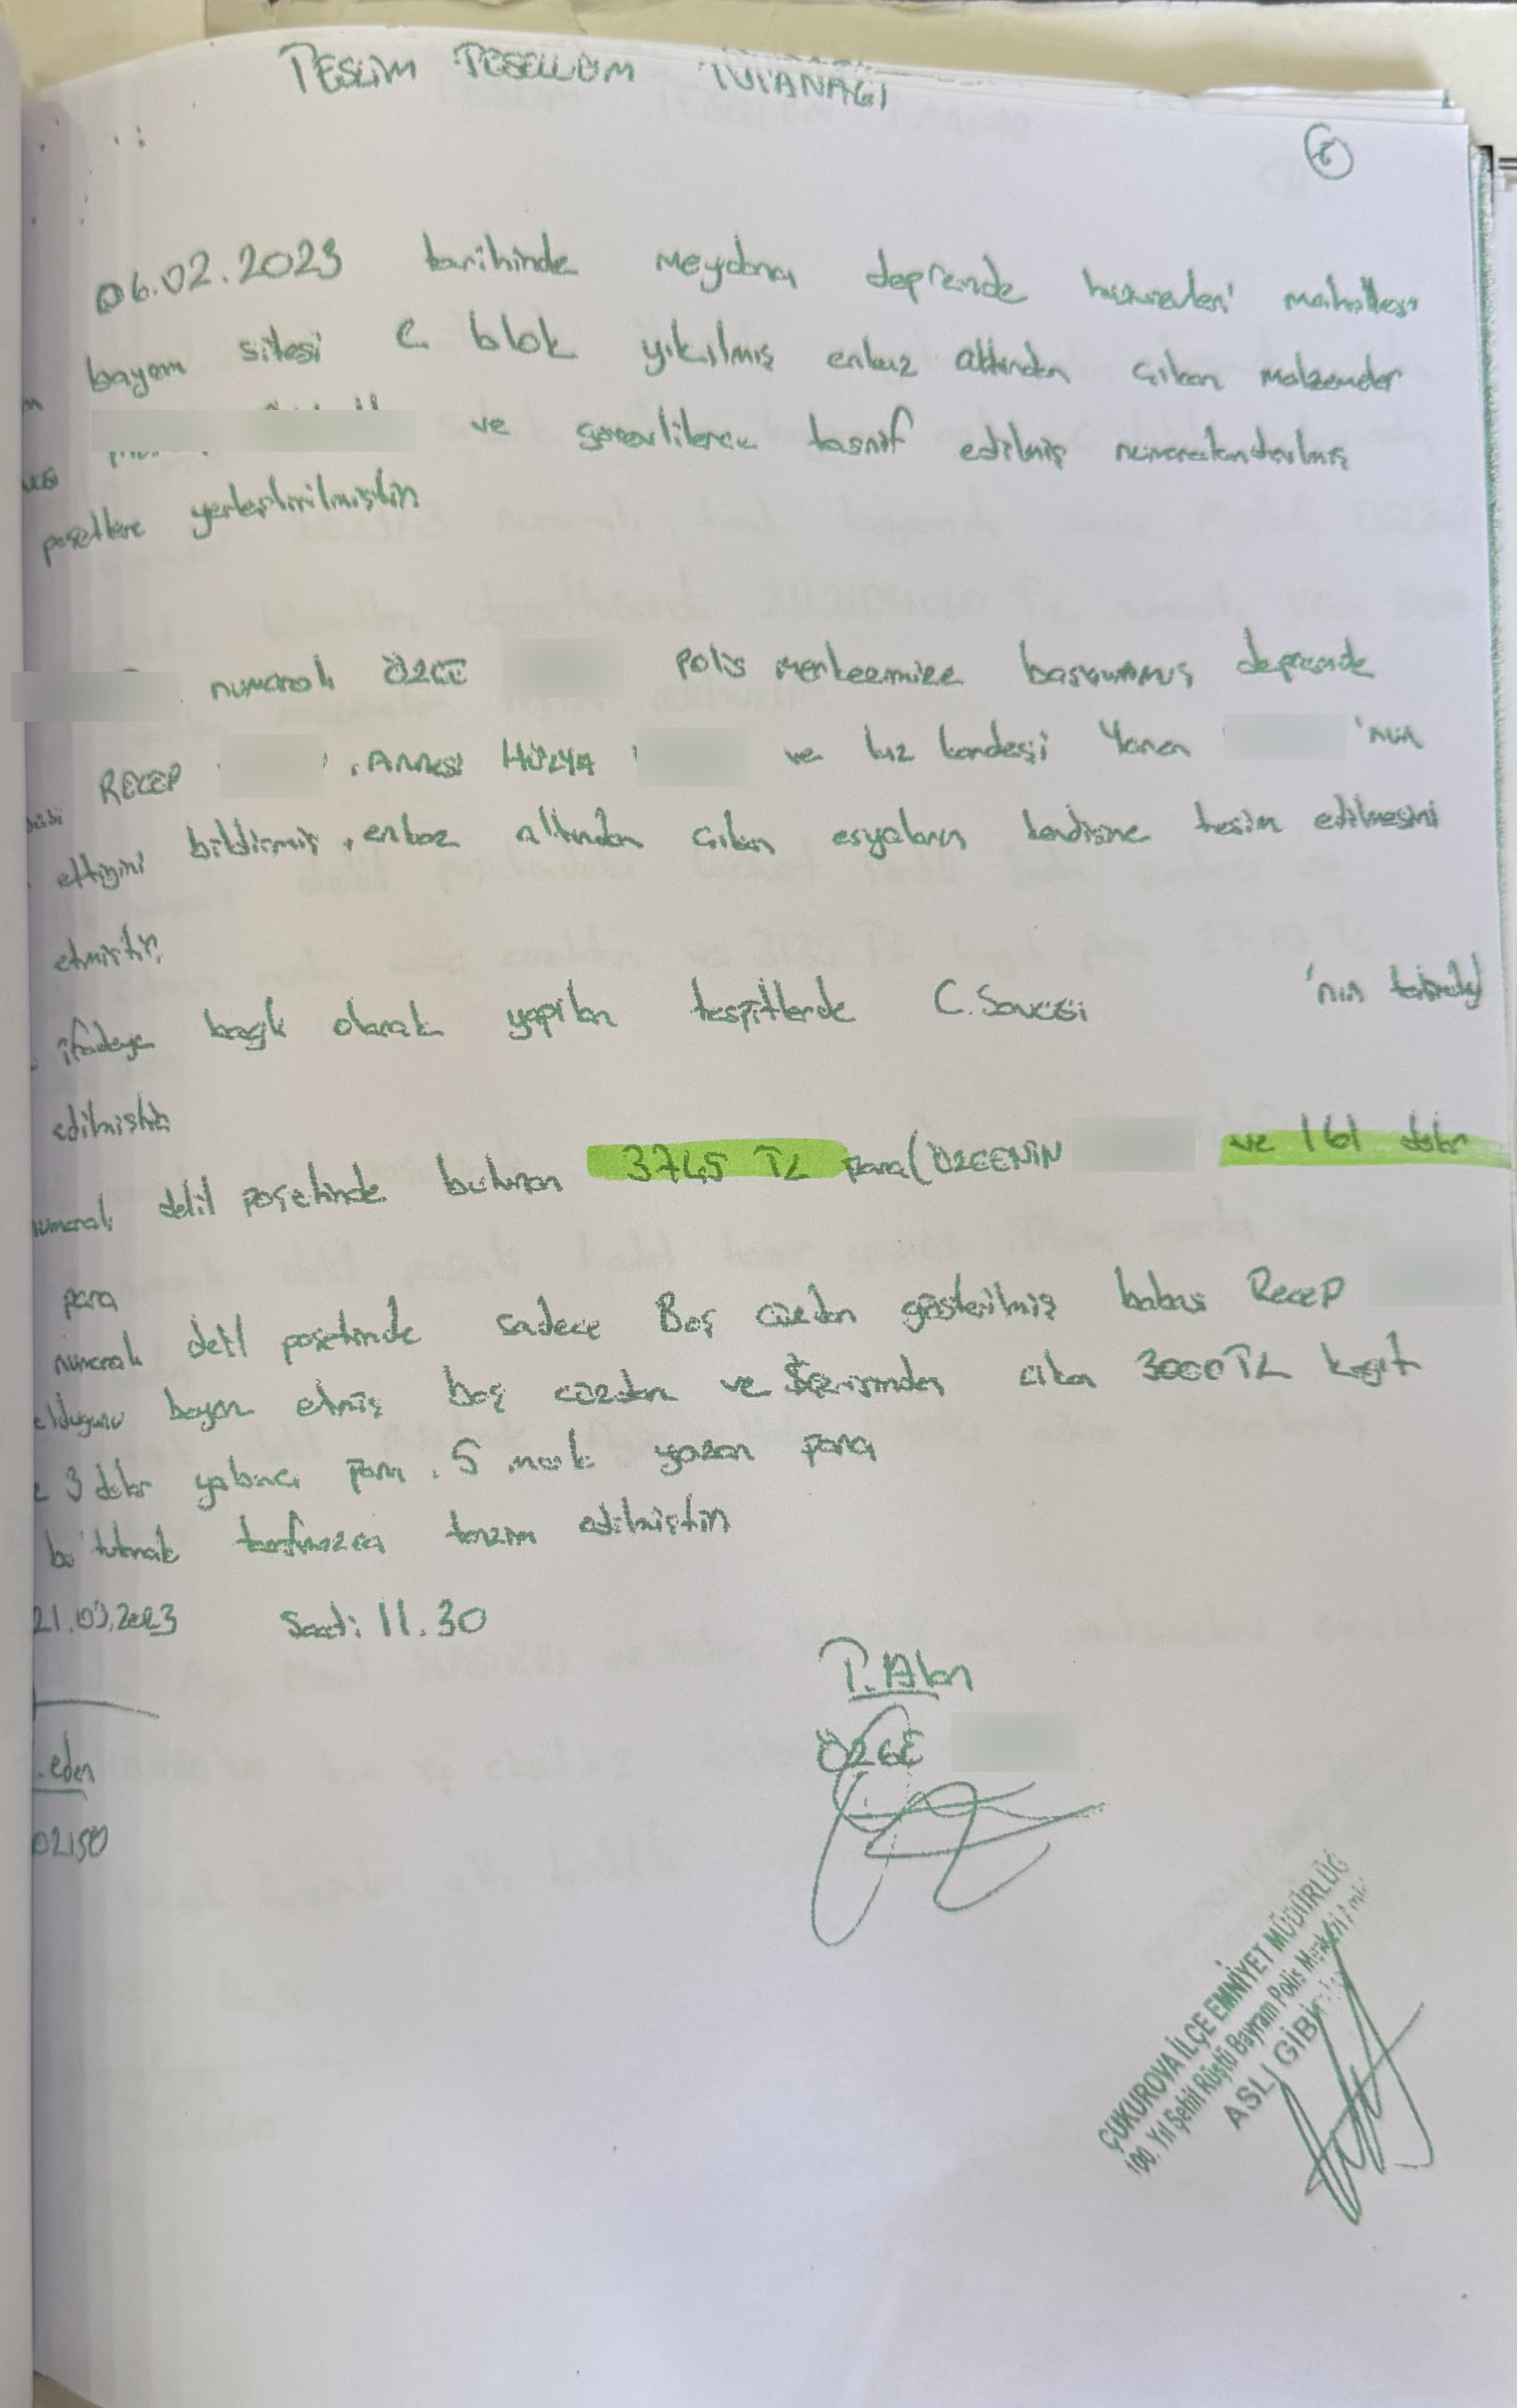 TESLİM TESELLÜM TUTANAĞI
6
06.02.2023 tarihinde meydana deprende huzurevleri mahallesi
bayam sitesi C blok yıkılmış enkaz altından çıkan malzemeler
ve görevlilerce tasnif edilmiş numaralandırılmış
poşetlere yerleştirilmiştir
numaralı ÖZGE polis merkezimize başvurmuş deprende
RECEP , ANNESİ HÜLYA ve kız kardeşi Yaren 'nın
ettiğini bildirmiş, enkaz altından çıkan eşyaların kendisine tesim edilmesini
etmiştir
ifadeye bağlı olarak yapılan tespitlerde C. Savcısı 'nın
edilmiştir
numaralı delil poşetinde bulunan 3745 TL para (ÖZGENİN ve 161 dolar
para
numaralı delil poşetinde sadece Boş cüzdan gösterilmiş babası Recep
olduğunu beyan etmiş boş cüzdan ve içerisinden çıkan 3000 TL kağıt
3 dolar yabancı para, 5 mark yazan para
bu tutanak tarafımızca tanzim edilmiştir
21.03.2023 Saat: 11.30
T. Alan
ÖZGE
eden
02150
ÇUKUROVA İLÇE EMNİYET MÜDÜRLÜĞ
100. Yıl Şehit Rüştü Bayram Polis Merkezi
ASLI GİBİ